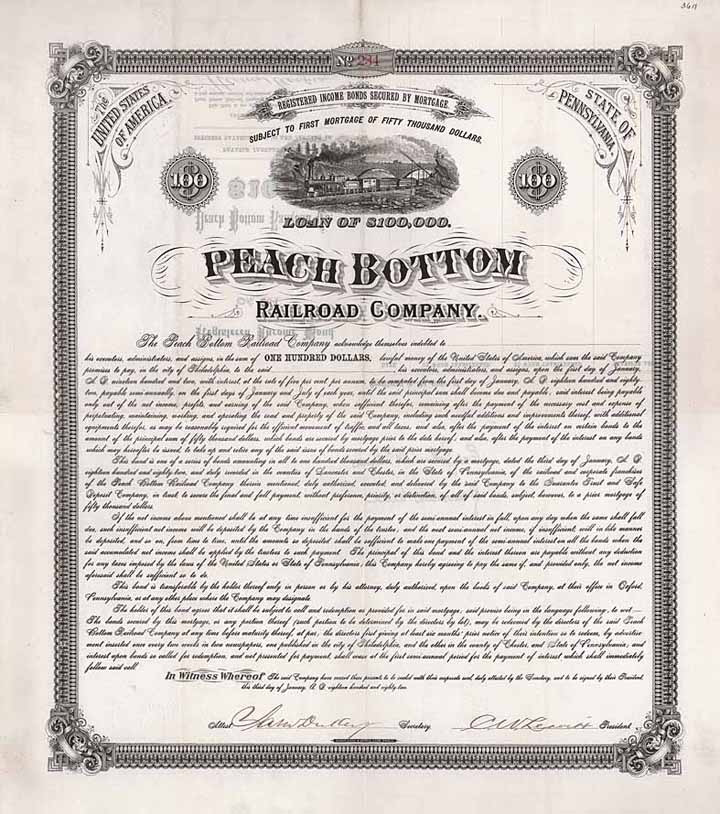 3611
No 234
REGISTERED INCOME BONDS SECURED BY MORTGAGE.
SUBJECT TO FIRST MORTGAGE OF FIFTY THOUSAND DOLLARS.
THE UNITED STATES OF AMERICA
STATE OF PENNSYLVANIA
100
$100
LOAN OF $100,000.
PEACH BOTTOM
RAILROAD COMPANY.
The Peach Bottom Railroad Company acknowledge themselves indebted to
his executors, administrators, and assigns, in the sum of ONE HUNDRED DOLLARS, lawful money of the United States of America, which sum the said Company
promises to pay, in the city of Philadelphia, to the said his executors, administrators, and assigns, upon the first day of January,
A. D. nineteen hundred and two, with interest, at the rate of five per cent. per annum, to be computed from the first day of January, A. D. eighteen hundred and eighty-
two, payable semi-annually, on the first days of January and July of each year, until the said principal sum shall become due and payable; said interest being payable
only out of the net income, profits, and earning of the said Company, when sufficient therefor, remaining after the payment of the necessary cost and expense of
perpetuating, maintaining, working, and operating the road and property of the said Company, including such needful additions and improvements thereof, with additional
equipments therefor, as may be reasonably required for the efficient movement of traffic, and all taxes, and also, after the payment of the interest on certain bonds to the
amount of the principal sum of fifty thousand dollars, which bonds are secured by mortgage prior to the date hereof; and also, after the payment of the interest on any bonds
which may hereafter be issued, to take up and retire any of the said issue of bonds secured by the said prior mortgage.
This bond is one of a series of bonds amounting in all to one hundred thousand dollars, which are secured by a mortgage, dated the third day of January, A. D.
eighteen hundred and eighty-two, and duly recorded in the counties of Lancaster and Chester, in the State of Pennsylvania, of the railroad and corporate franchises
of the Peach Bottom Railroad Company therein mentioned, duly authorized, executed, and delivered by the said Company to the Guarantee Trust and Safe
Deposit Company, in trust, to secure the final and full payment, without preference, priority, or distinction, of all of said bonds, subject, however, to a prior mortgage of
fifty thousand dollars.
If the net income above mentioned shall be at any time insufficient for the payment of the semi-annual interest in full, upon any day when the same shall fall
due, such insufficient net income will be deposited by the Company in the hands of the trustee; and the next semi-annual net income, if insufficient, will in like manner
be deposited, and so on, from time to time, until the amounts so deposited shall be sufficient to make one payment of the semi-annual interest on all the bonds when the
said accumulated net income shall be applied by the trustees to such payment. The principal of this bond and the interest thereon are payable without any deduction
for any taxes imposed by the laws of the United States or State of Pennsylvania; this Company hereby agreeing to pay the same if, and provided only, the net income
aforesaid shall be sufficient so to do.
This bond is transferable by the holder thereof only in person or by his attorney, duly authorized, upon the books of said Company, at their office in Oxford,
Pennsylvania, or at any other place where the Company may designate.
The holder of this bond agrees that it shall be subject to call and redemption as provided for in said mortgage, said proviso being in the language following, to wit:—
The bonds secured by this mortgage, or any portion thereof (such portion to be determined by the directors by lot), may be redeemed by the directors of the said Peach
Bottom Railroad Company at any time before maturity thereof, at par, the directors first giving at least six months' prior notice of their intention so to redeem, by advertise-
ment inserted once every two weeks in two newspapers, one published in the city of Philadelphia, and the other in the county of Chester, and State of Pennsylvania; and
interest upon bonds so called for redemption, and not presented for payment, shall cease at the first semi-annual period for the payment of interest which shall immediately
follow said call.
In Witness Whereof The said Company have caused these presents to be sealed with their corporate seal, duly attested by the Secretary, and to be signed by their President,
this third day of January, A. D. eighteen hundred and eighty-two.
Attest Secretary. President.